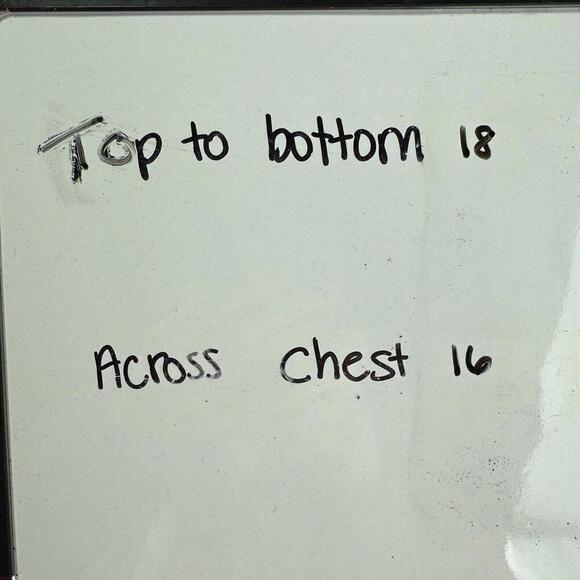 Top to bottom 18
Across Chest 16